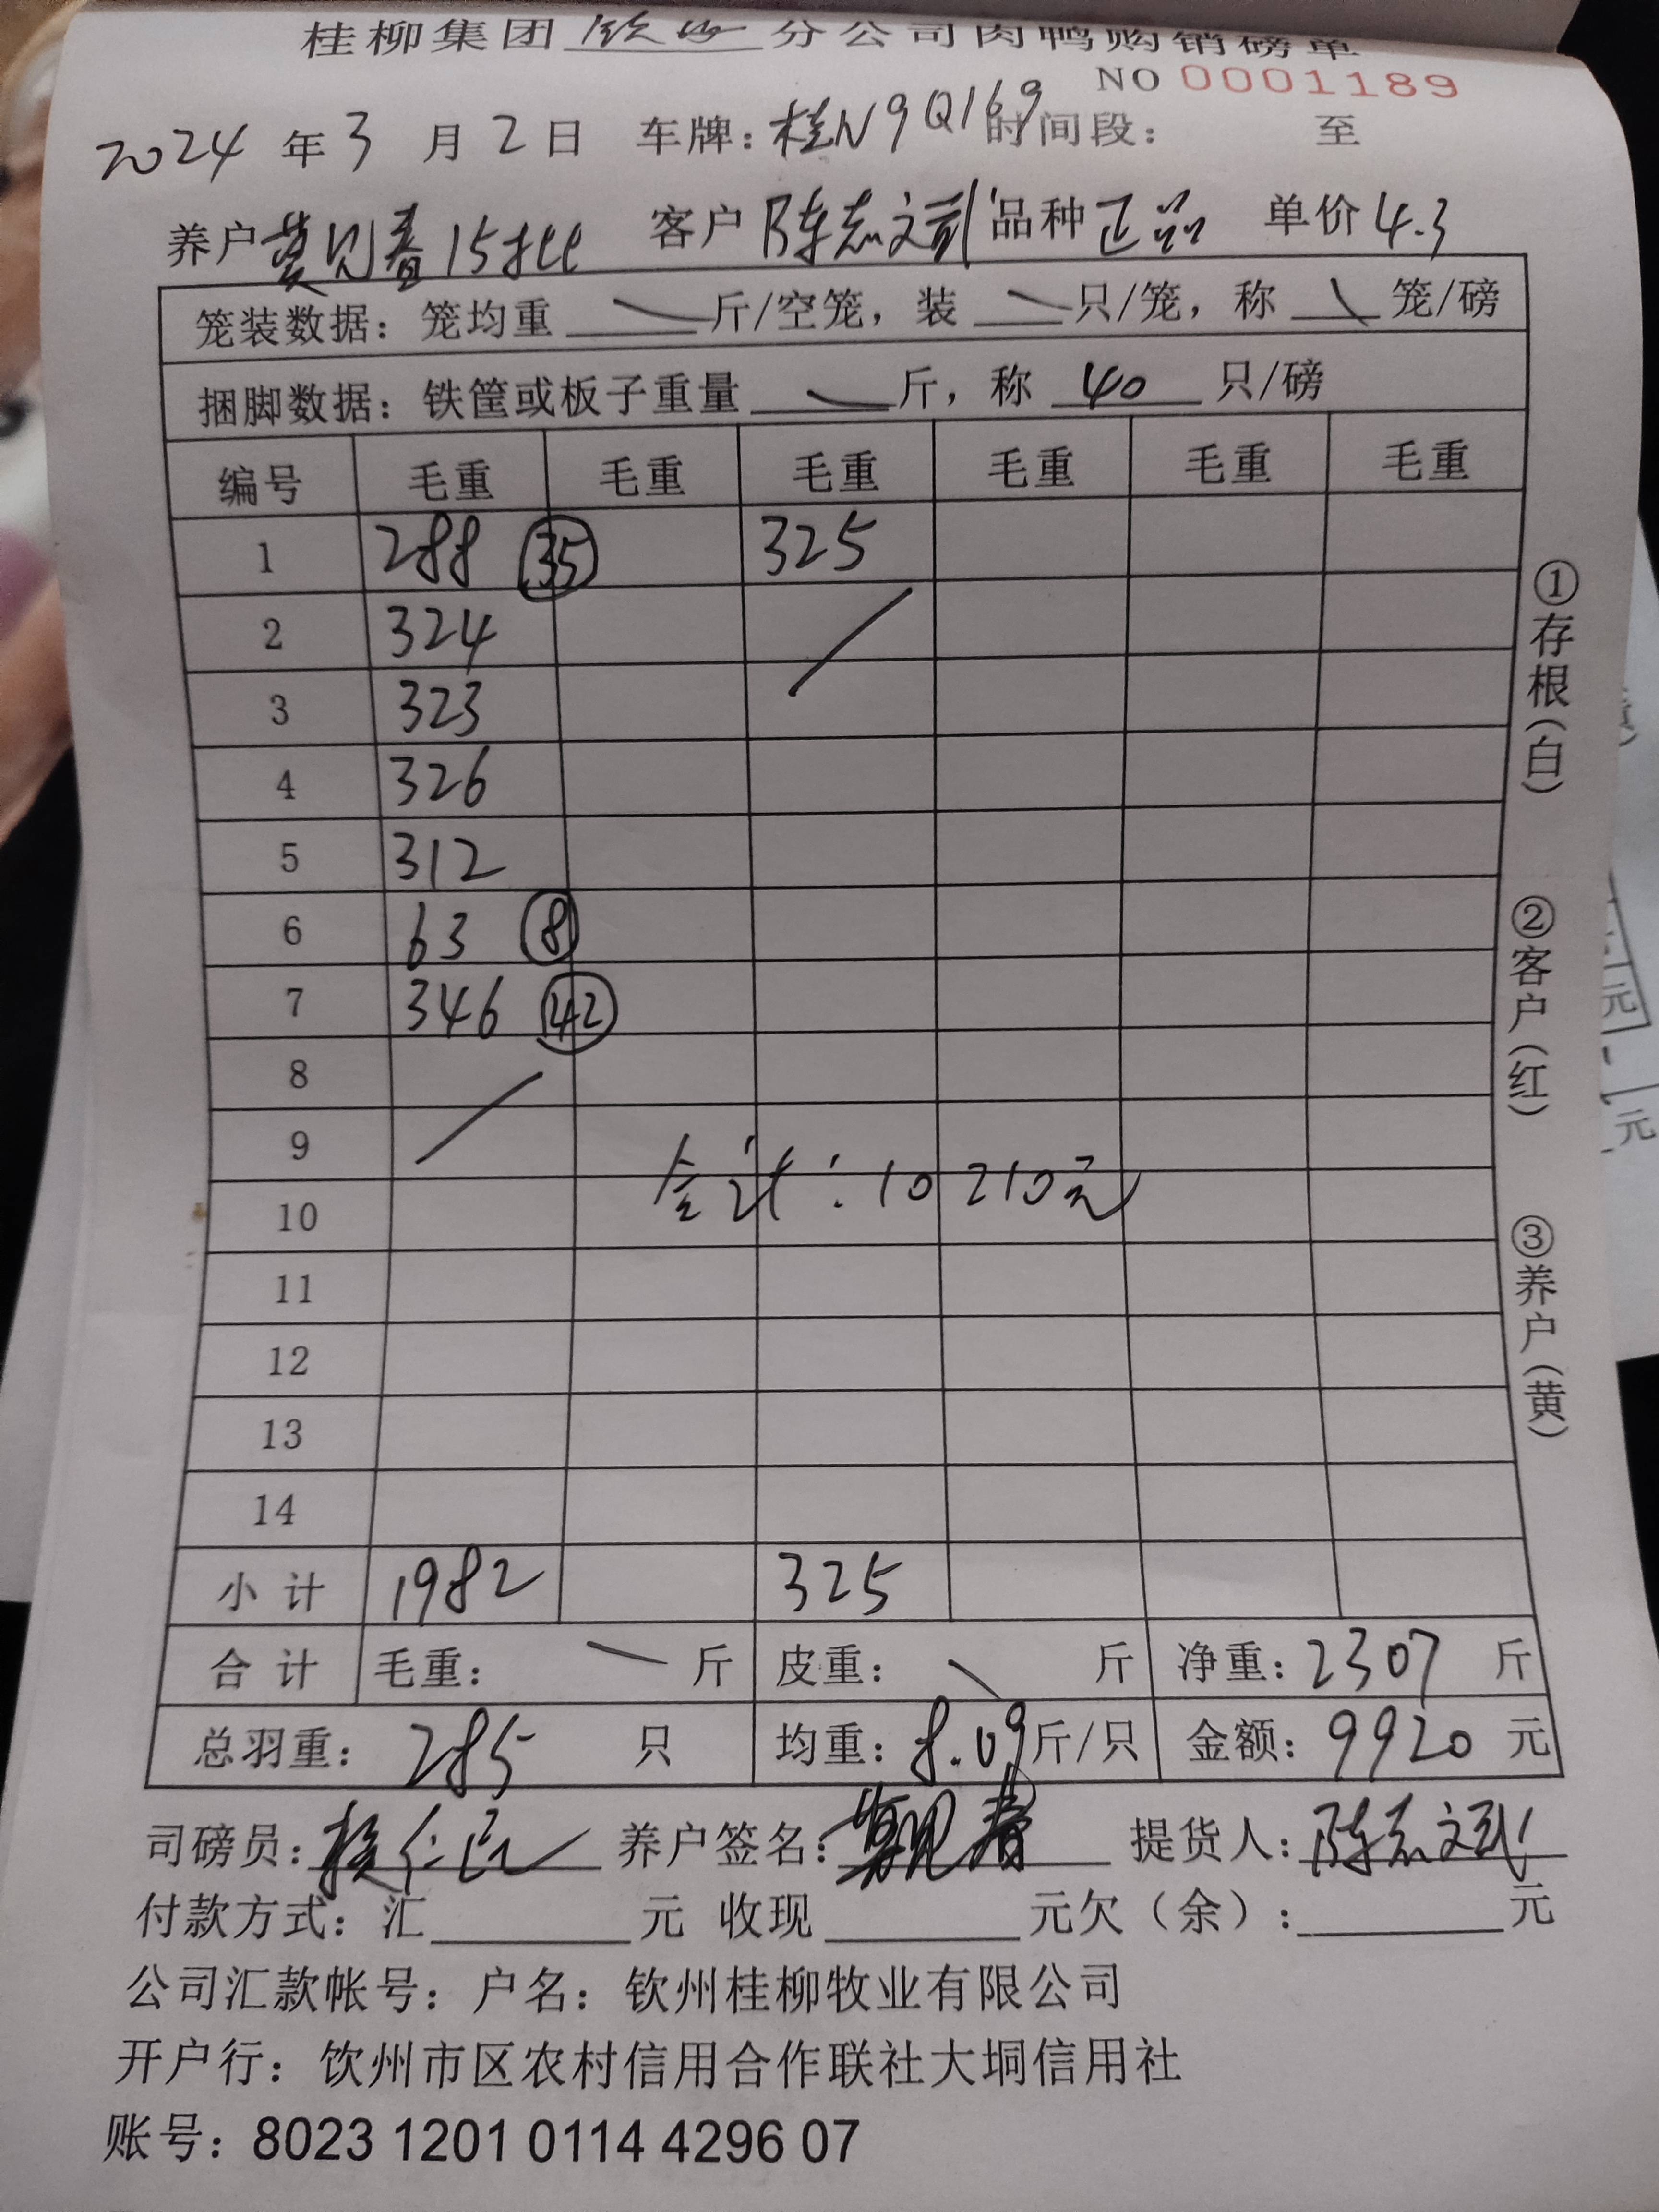 桂柳集团 钦州 分公司肉鸭购销磅单
NO 0001189
2024 年 3 月 2 日 车牌：桂N9Q169 时间段： 至
养户 莫见春15批 客户 陈志文武 品种 正品 单价 4.3
笼装数据：笼均重 斤/空笼，装 只/笼，称 笼/磅
捆脚数据：铁筐或板子重量 斤，称 40 只/磅
编号 毛重 毛重 毛重 毛重 毛重 毛重
1 288 35 325
2 324
3 323
4 326
5 312
6 63 8
7 346 42
8
9
10 合计：10210元
11
12
13
14
小计 1982 325
合计 毛重： 斤 皮重： 斤 净重：2307 斤
总羽重：285 只 均重：8.09斤/只 金额：9920 元
司磅员： 养户签名：莫见春 提货人：陈志文武
付款方式：汇 元 收现 元欠（余）： 元
公司汇款帐号：户名：钦州桂柳牧业有限公司
开户行：饮州市区农村信用合作联社大垌信用社
账号：8023 1201 0114 4296 07
①存根（白）
②客户（红）
③养户（黄）
元
元